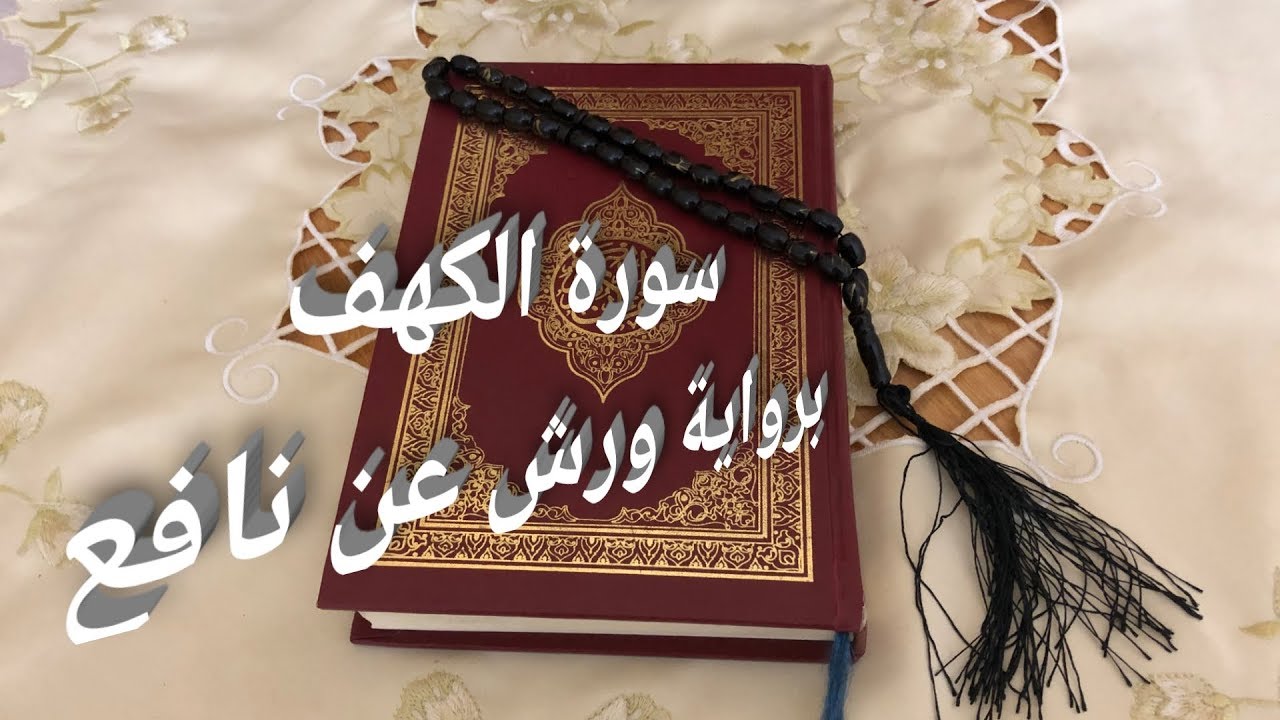 سورة الكهف
برواية ورش عن نافع